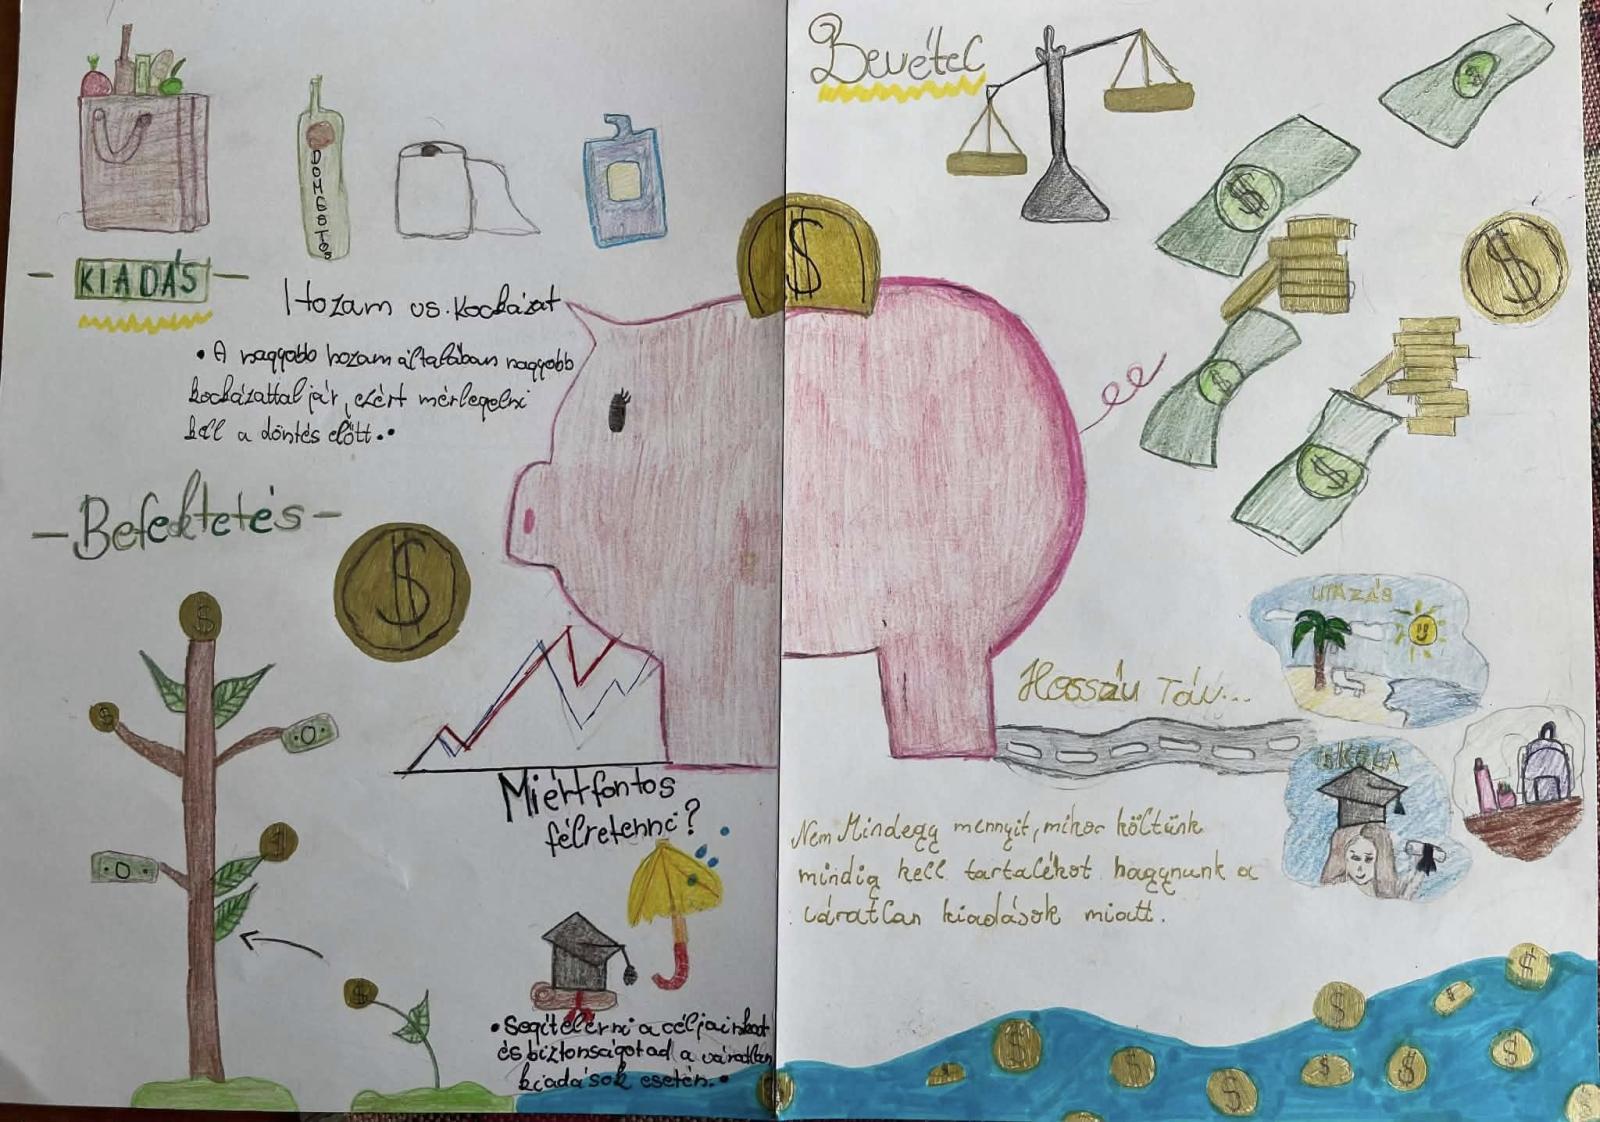 DOMESTOS
KIADÁS
Hozam vs. kockázat
• A nagyobb hozam általában nagyobb
kockázattal jár, ezért mérlegelni
kell a döntés előtt.•
- Befektetés -
$
$
$
$
0
0
1
$
Miért fontos
félretenni?
• Segít elérni a céljainkat
és biztonságot ad a váratlan
kiadások esetén.•
Bevétel
$
$
$
$
$
$
UTAZÁS
Hosszú Táv...
ISKOLA
Nem Mindegy mennyit, mikor költünk
mindig kell tartalékot hagynunk a
váratlan kiadások miatt.
$
$
$
$
$
$
$
$
$